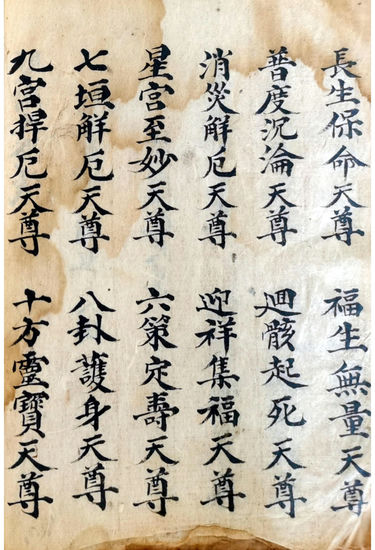 長生保命天尊
福生無量天尊
普度沉淪天尊
迴骸起死天尊
消災解厄天尊
迎祥集福天尊
星宮至妙天尊
六策定壽天尊
七垣解厄天尊
八卦護身天尊
九宮捍厄天尊
十方靈寶天尊